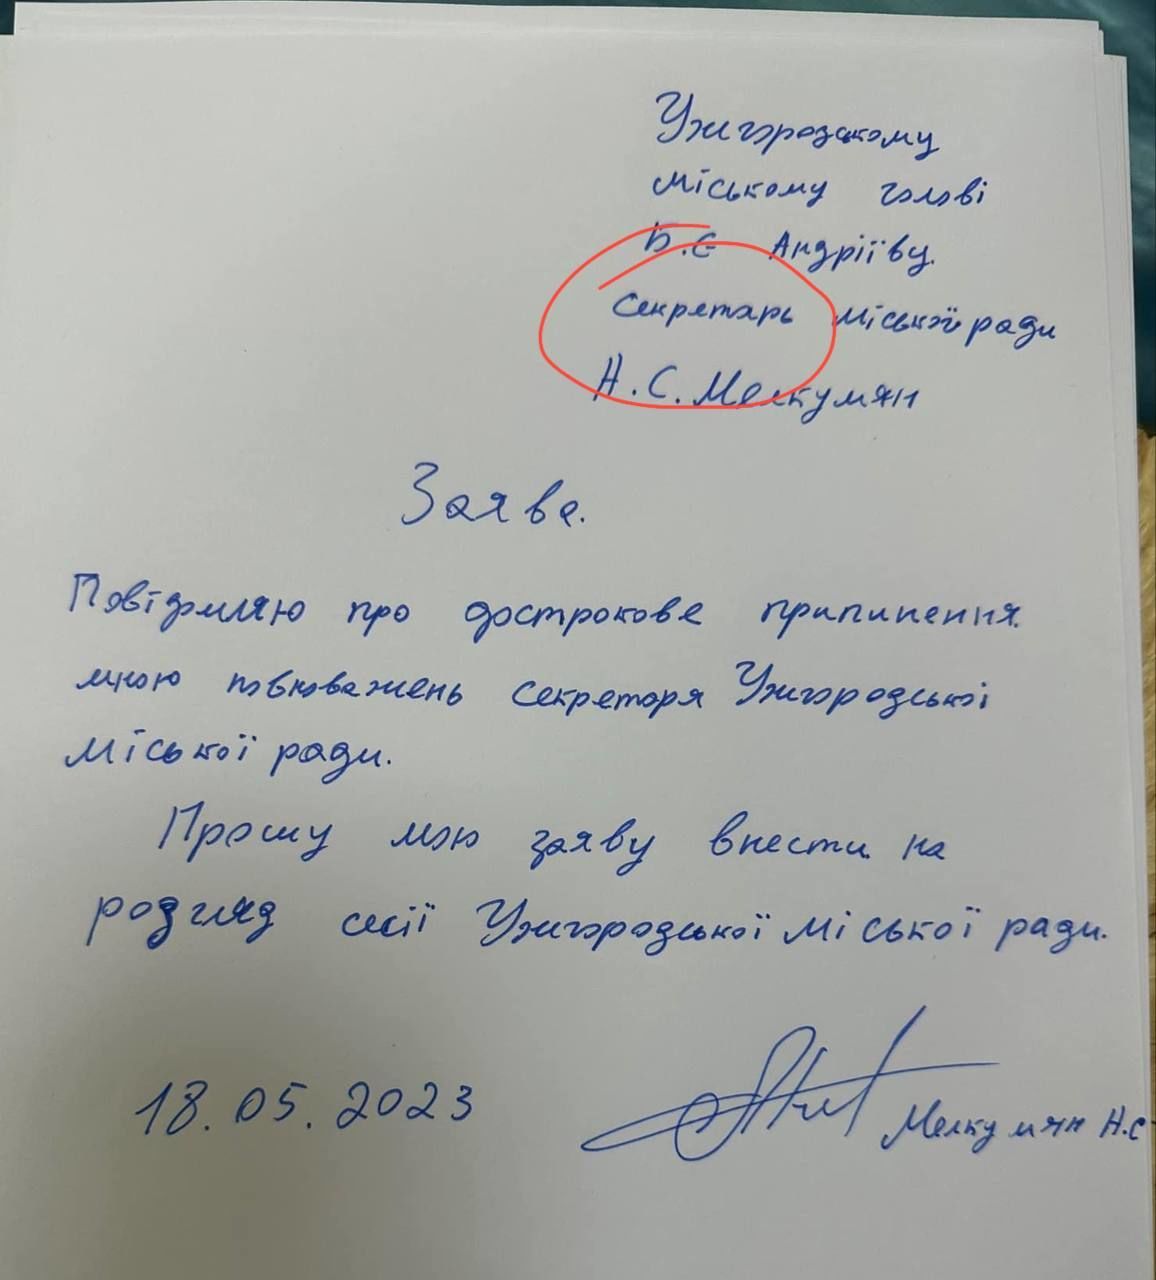 Ужгородському
міському голові
Б.Є Андріїву.
Секретарь міської ради
Н.С.Мелкумян
Заява.
Повідомляю про дострокове припинення
мною повноважень секретаря Ужгородської
міської ради.
Прошу мою заяву внести на
розгляд сесії Ужгородської міської ради.
18.05.2023
Мелкумян Н.С